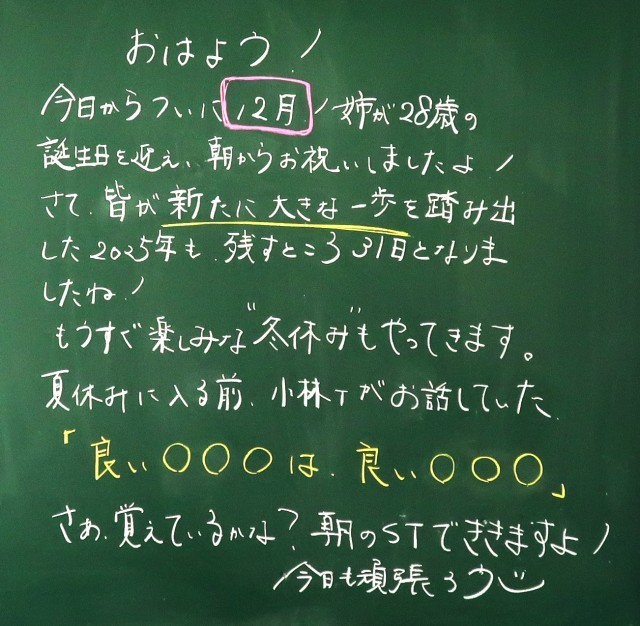 おはよう！
今日からついに12月！姉が28歳の
誕生日を迎え、朝からお祝いしましたよ！
さて、皆が新たに大きな一歩を踏み出
した2025年も、残すところ31日となりま
したね！
もうすぐ楽しみな"冬休み"もやってきます。
夏休みに入る前、小林Tがお話していた、
「良い○○○は、良い○○○」
さあ、覚えているかな？朝のSTでききますよ！
今日も頑張ろう